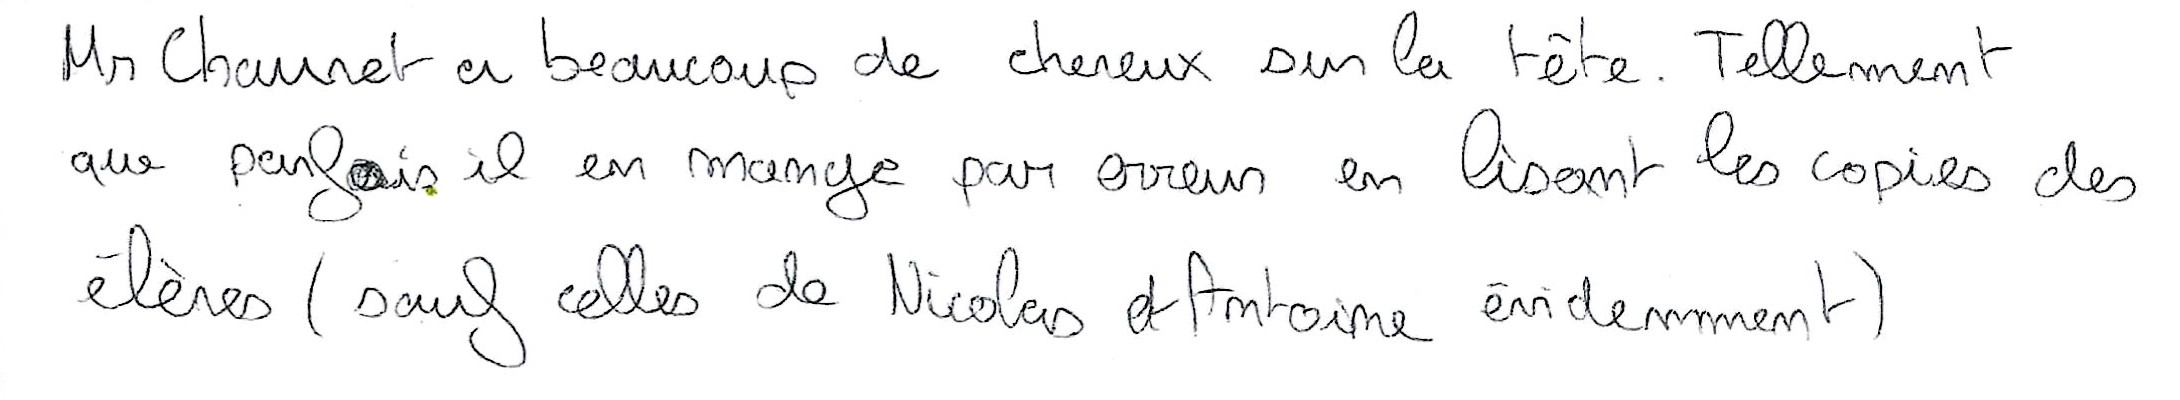 Mr Chauvet a beaucoup de cheveux sur la tête. Tellement
que parfois il en mange par erreur en lisant les copies des
élèves (sauf celles de Nicolas et Antoine évidemment)